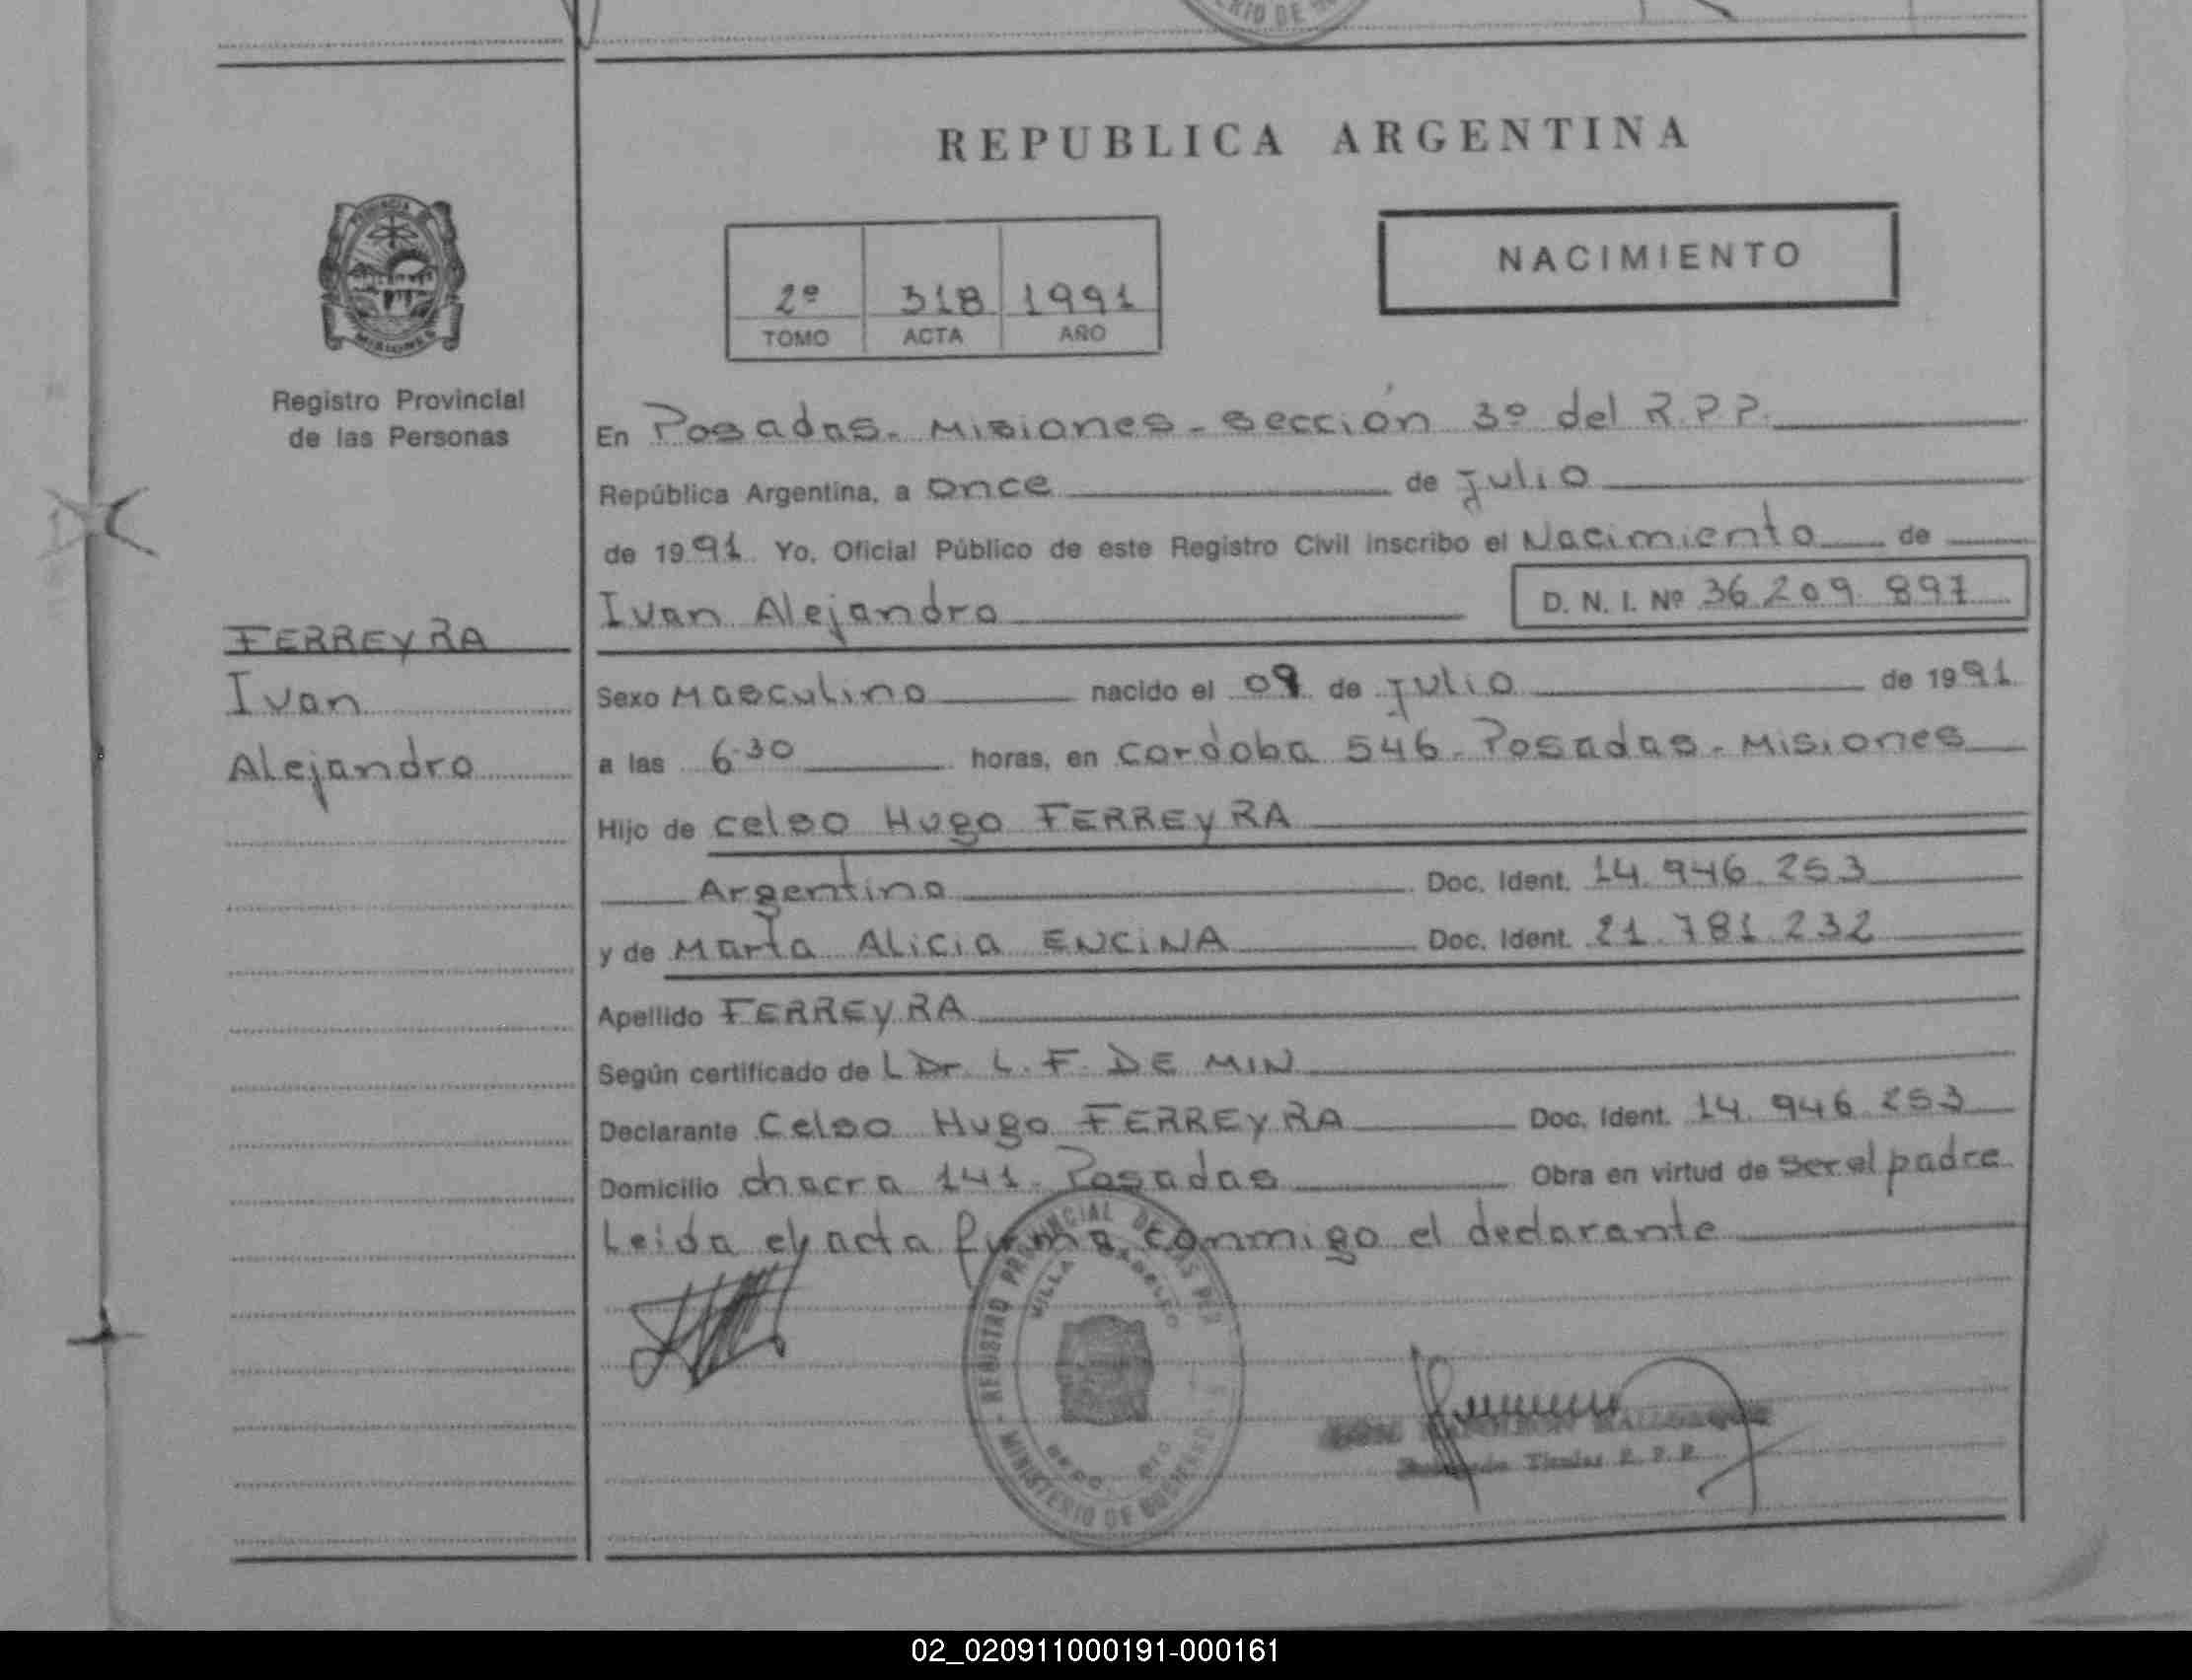 REPUBLICA ARGENTINA
NACIMIENTO
2º 318 1991
TOMO ACTA AÑO
Registro Provincial
de las Personas
FERREYRA
Ivan
Alejandro
En Posadas. Misiones - sección 3º del R.P.P.
República Argentina, a once de julio
de 1991 Yo, Oficial Público de este Registro Civil inscribo el Nacimiento de
Ivan Alejandro D. N. I. Nº 36.209.897
Sexo Masculino nacido el de julio de 1991
a las 6:30 horas, en Cordoba 546 - Posadas - Misiones
Hijo de Celso Hugo FERREYRA
Argentino Doc. Ident. 14.946.253
y de Marta Alicia ENCINA Doc. Ident. 21.781.232
Apellido FERREYRA
Según certificado de L Dr. L. F. DE MIN
Declarante Celso Hugo FERREYRA Doc. Ident. 14.946.253
Domicilio chacra 141 - Posadas Obra en virtud de ser el padre
Leida el acta firma conmigo el declarante
REGISTRO PROVINCIAL DE LAS PER
VILLA
MINISTERIO DE
R. P. P.
02_020911000191-000161